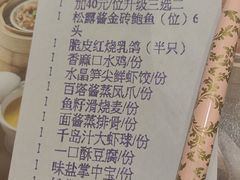 1 加40元/位升级三选二
1 松露酱金砖鲍鱼（位）6
头
1 脆皮红烧乳鸽（半只）
1 香麻口水鸡/份
1 水晶笋尖鲜虾饺/份
1 百塔酱蒸凤爪/份
1 鱼籽滑烧麦/份
1 面酱蒸排骨/份
1 千岛汁大虾球/份
1 一口酥豆腐/份
1 味盐掌中宝/份